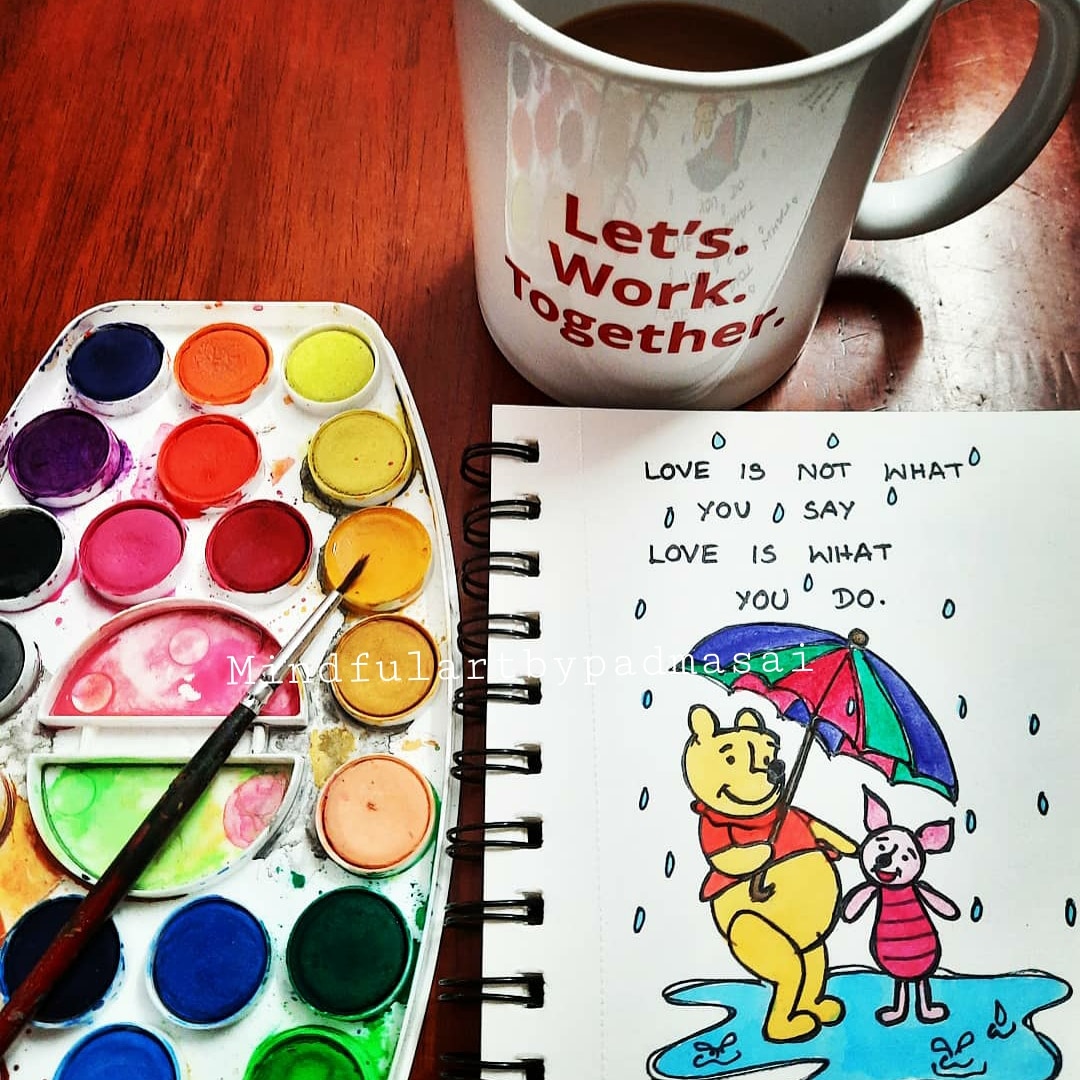 Let's.
Work.
Together.
LOVE IS NOT WHAT
YOU SAY
LOVE IS WHAT
YOU DO.
Mindfulartbypadmasai